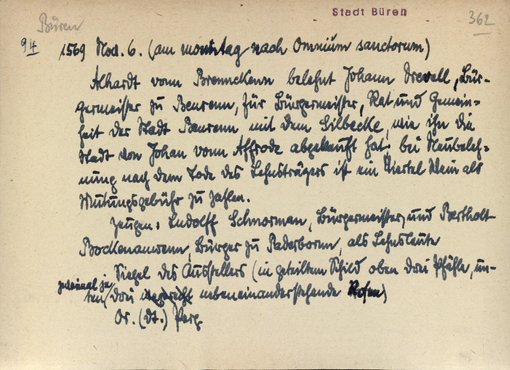 Büren
Stadt Büren
362
94 1569 Nov. 6. (am monntag nach Omnium sanctorum)
Alhardt vonn Brennckenn belehnt Johann Drevell, Bür-
germeister zu Beurenn, für Bürgermeister, Rat und Gemein-
heit der Stadt Beurenn mit dem Silbecke, wie ihn die
Stadt von Johan vonn Affrode abgekauft hat; bei Neubeleh-
nung nach dem Tode des Lehnsträgers ist ein Viertel Wein als
Mutungsgebühr zu zahlen.
Zeugen: Ludolff Schnorman, Bürgermeister, und Bertholt
Bockenauwenn, Bürger zu Paderbornn, als Lehnsleute
Siegel des Ausstellers (in geteiltem Schild oben drei Pfähle, un-
ten drei nebeneinanderstehende Rosen)
Or. (dt.) Perg